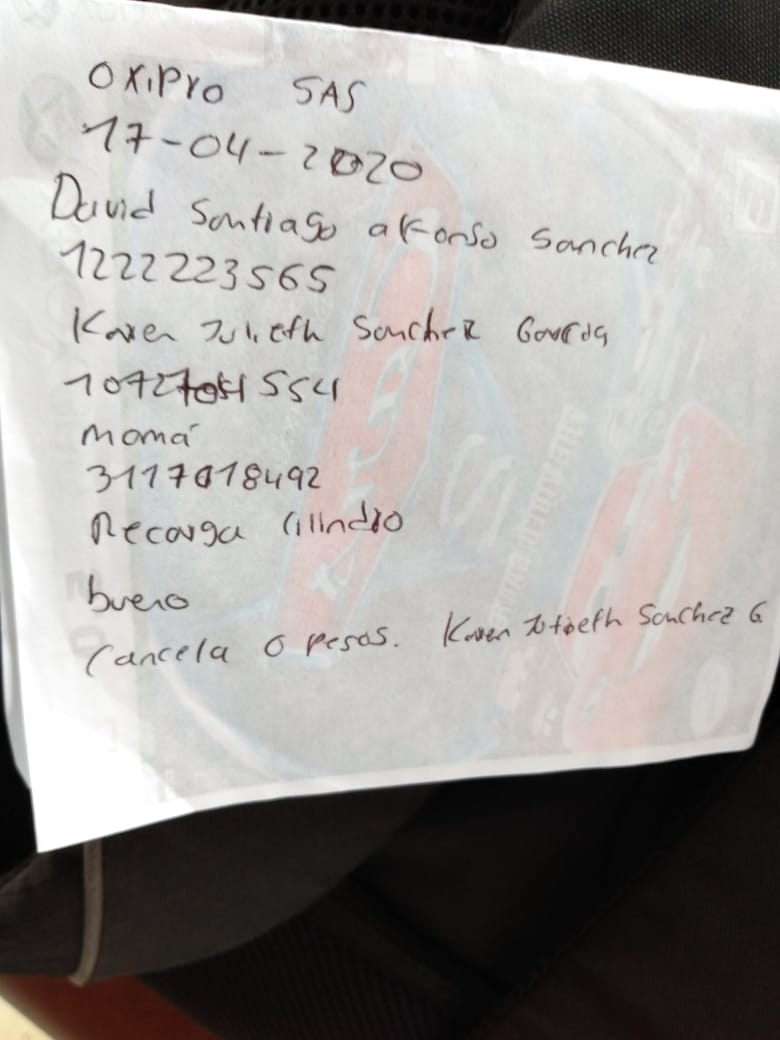 OXIPRO SAS
17-04-2020
David Santiago alfonso Sanchez
1222223565
Karen Julieth Sanchez
554
mamá
3117018492
Recarga Cilindro
bueno
Cancela 0 pesos. Karen Julieth Sanchez G.